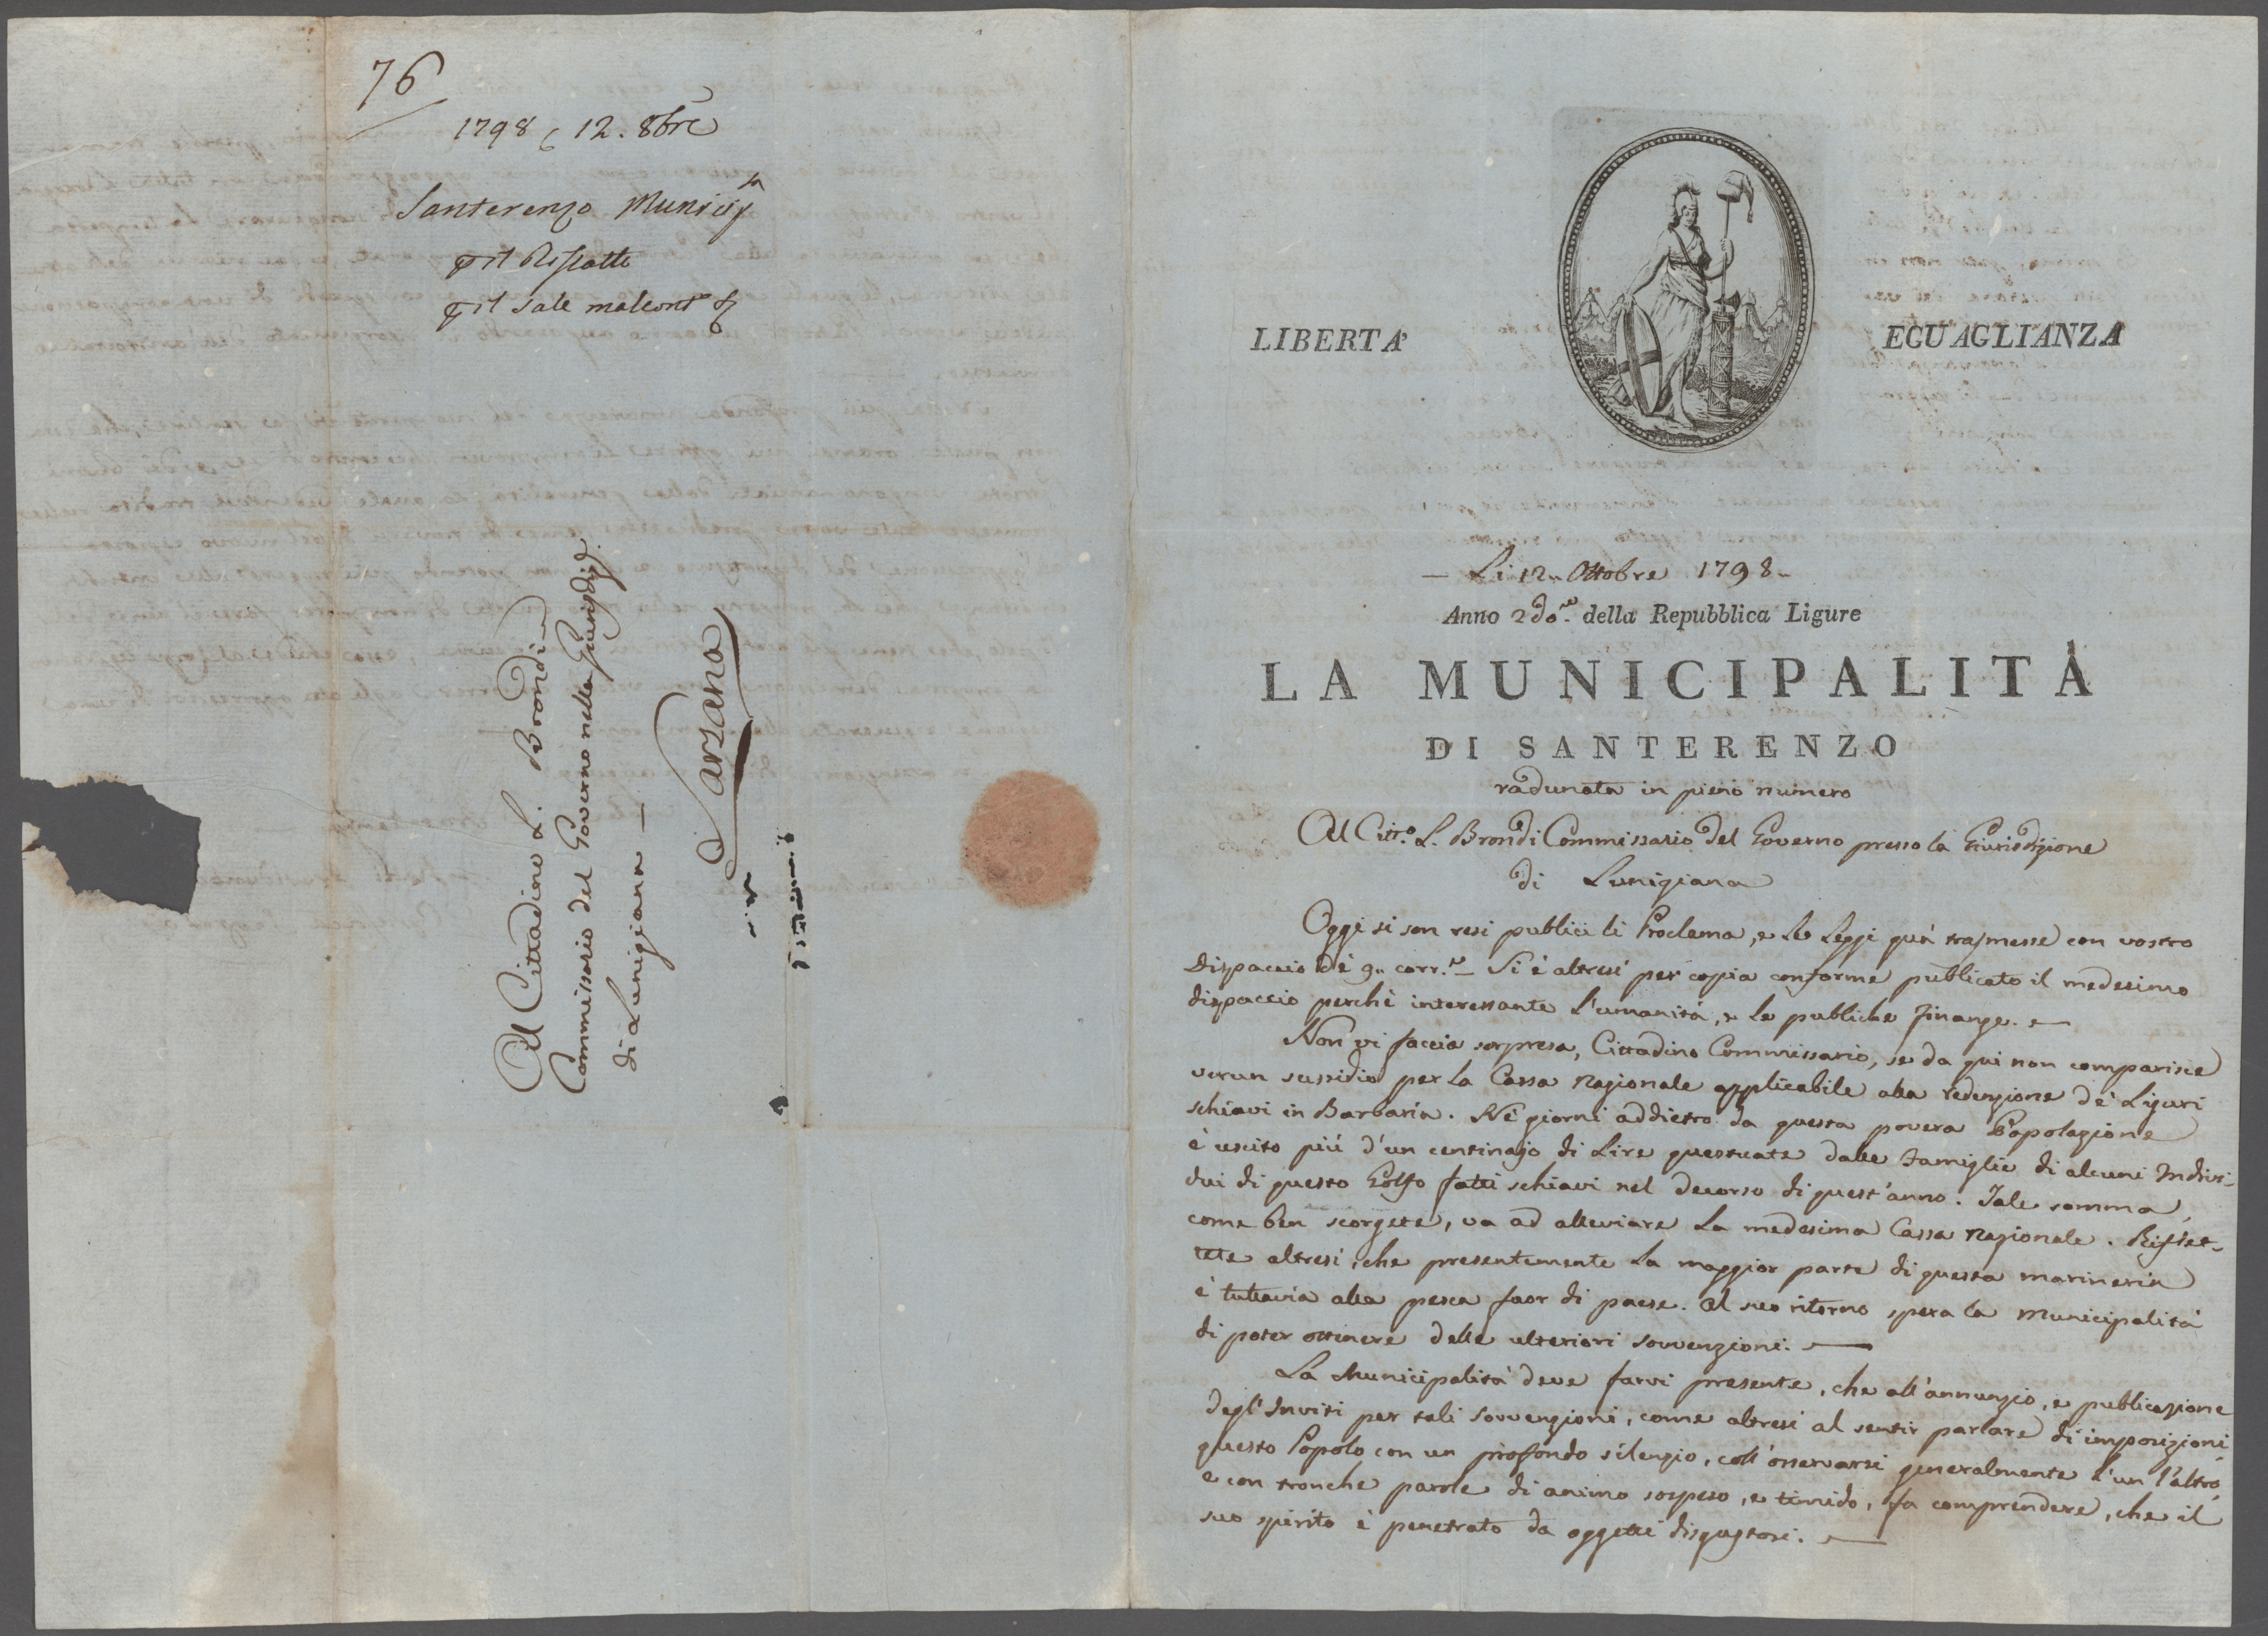 76
1798 12. 8bre
Santerenzo Municip
il Riscatto
il Sale
Al Cittadino L. Brondi
Commissario del Governo nella Giurisdiz.
di Lunigiana —
Sarzana
LIBERTA'
EGUAGLIANZA
— Li 12. Ottobre 1798 —
Anno 2do. della Repubblica Ligure
LA MUNICIPALITÀ
DI SANTERENZO
radunata in pieno numero
Al Citt.o L. Brondi Commissario del Governo presso la Giurisdizione
di Lunigiana
Oggi si son resi publici li Proclama, e le Leggi quà trasmesse con vostro
Dispaccio dè 9. corr.e — Si è altresì per copia conforme publicato il medesimo
dispaccio perchè interessante l'umanità, e le publiche finanze. —
Non vi faccia sorpresa, Cittadino Commissario, se da qui non comparisce
verun sussidio per la Cassa Nazionale applicabile alla redenzione dè Liguri
schiavi in Barbaria. Nè giorni addietro da questa povera Popolazione
è uscito più d'un centinajo di Lire questuate dalle Famiglie di alcuni Indivi-
dui di questo Golfo fatti schiavi nel decorso di quest'anno. Tale somma,
come ben scorgete, va ad alleviare la medesima Cassa Nazionale. Riflet-
tete altresì, che presentemente la maggior parte di questa marineria
è tuttavia alla pesca fuor di paese. Al suo ritorno spera la Municipalità
di poter ottenere delle ulteriori sovvenzioni. —
La Municipalità deve farvi presente, che all'annunzio, e publicazione
degl'Inviti per tali sovvenzioni, come altresì al sentir parlare di imposizioni
questo Popolo con un profondo silenzio, coll'osservarsi generalmente l'un l'altro,
e con tronche parole di animo sospeso, e timido, fa comprendere, che il
suo spirito è penetrato da oggetti disgustosi. —